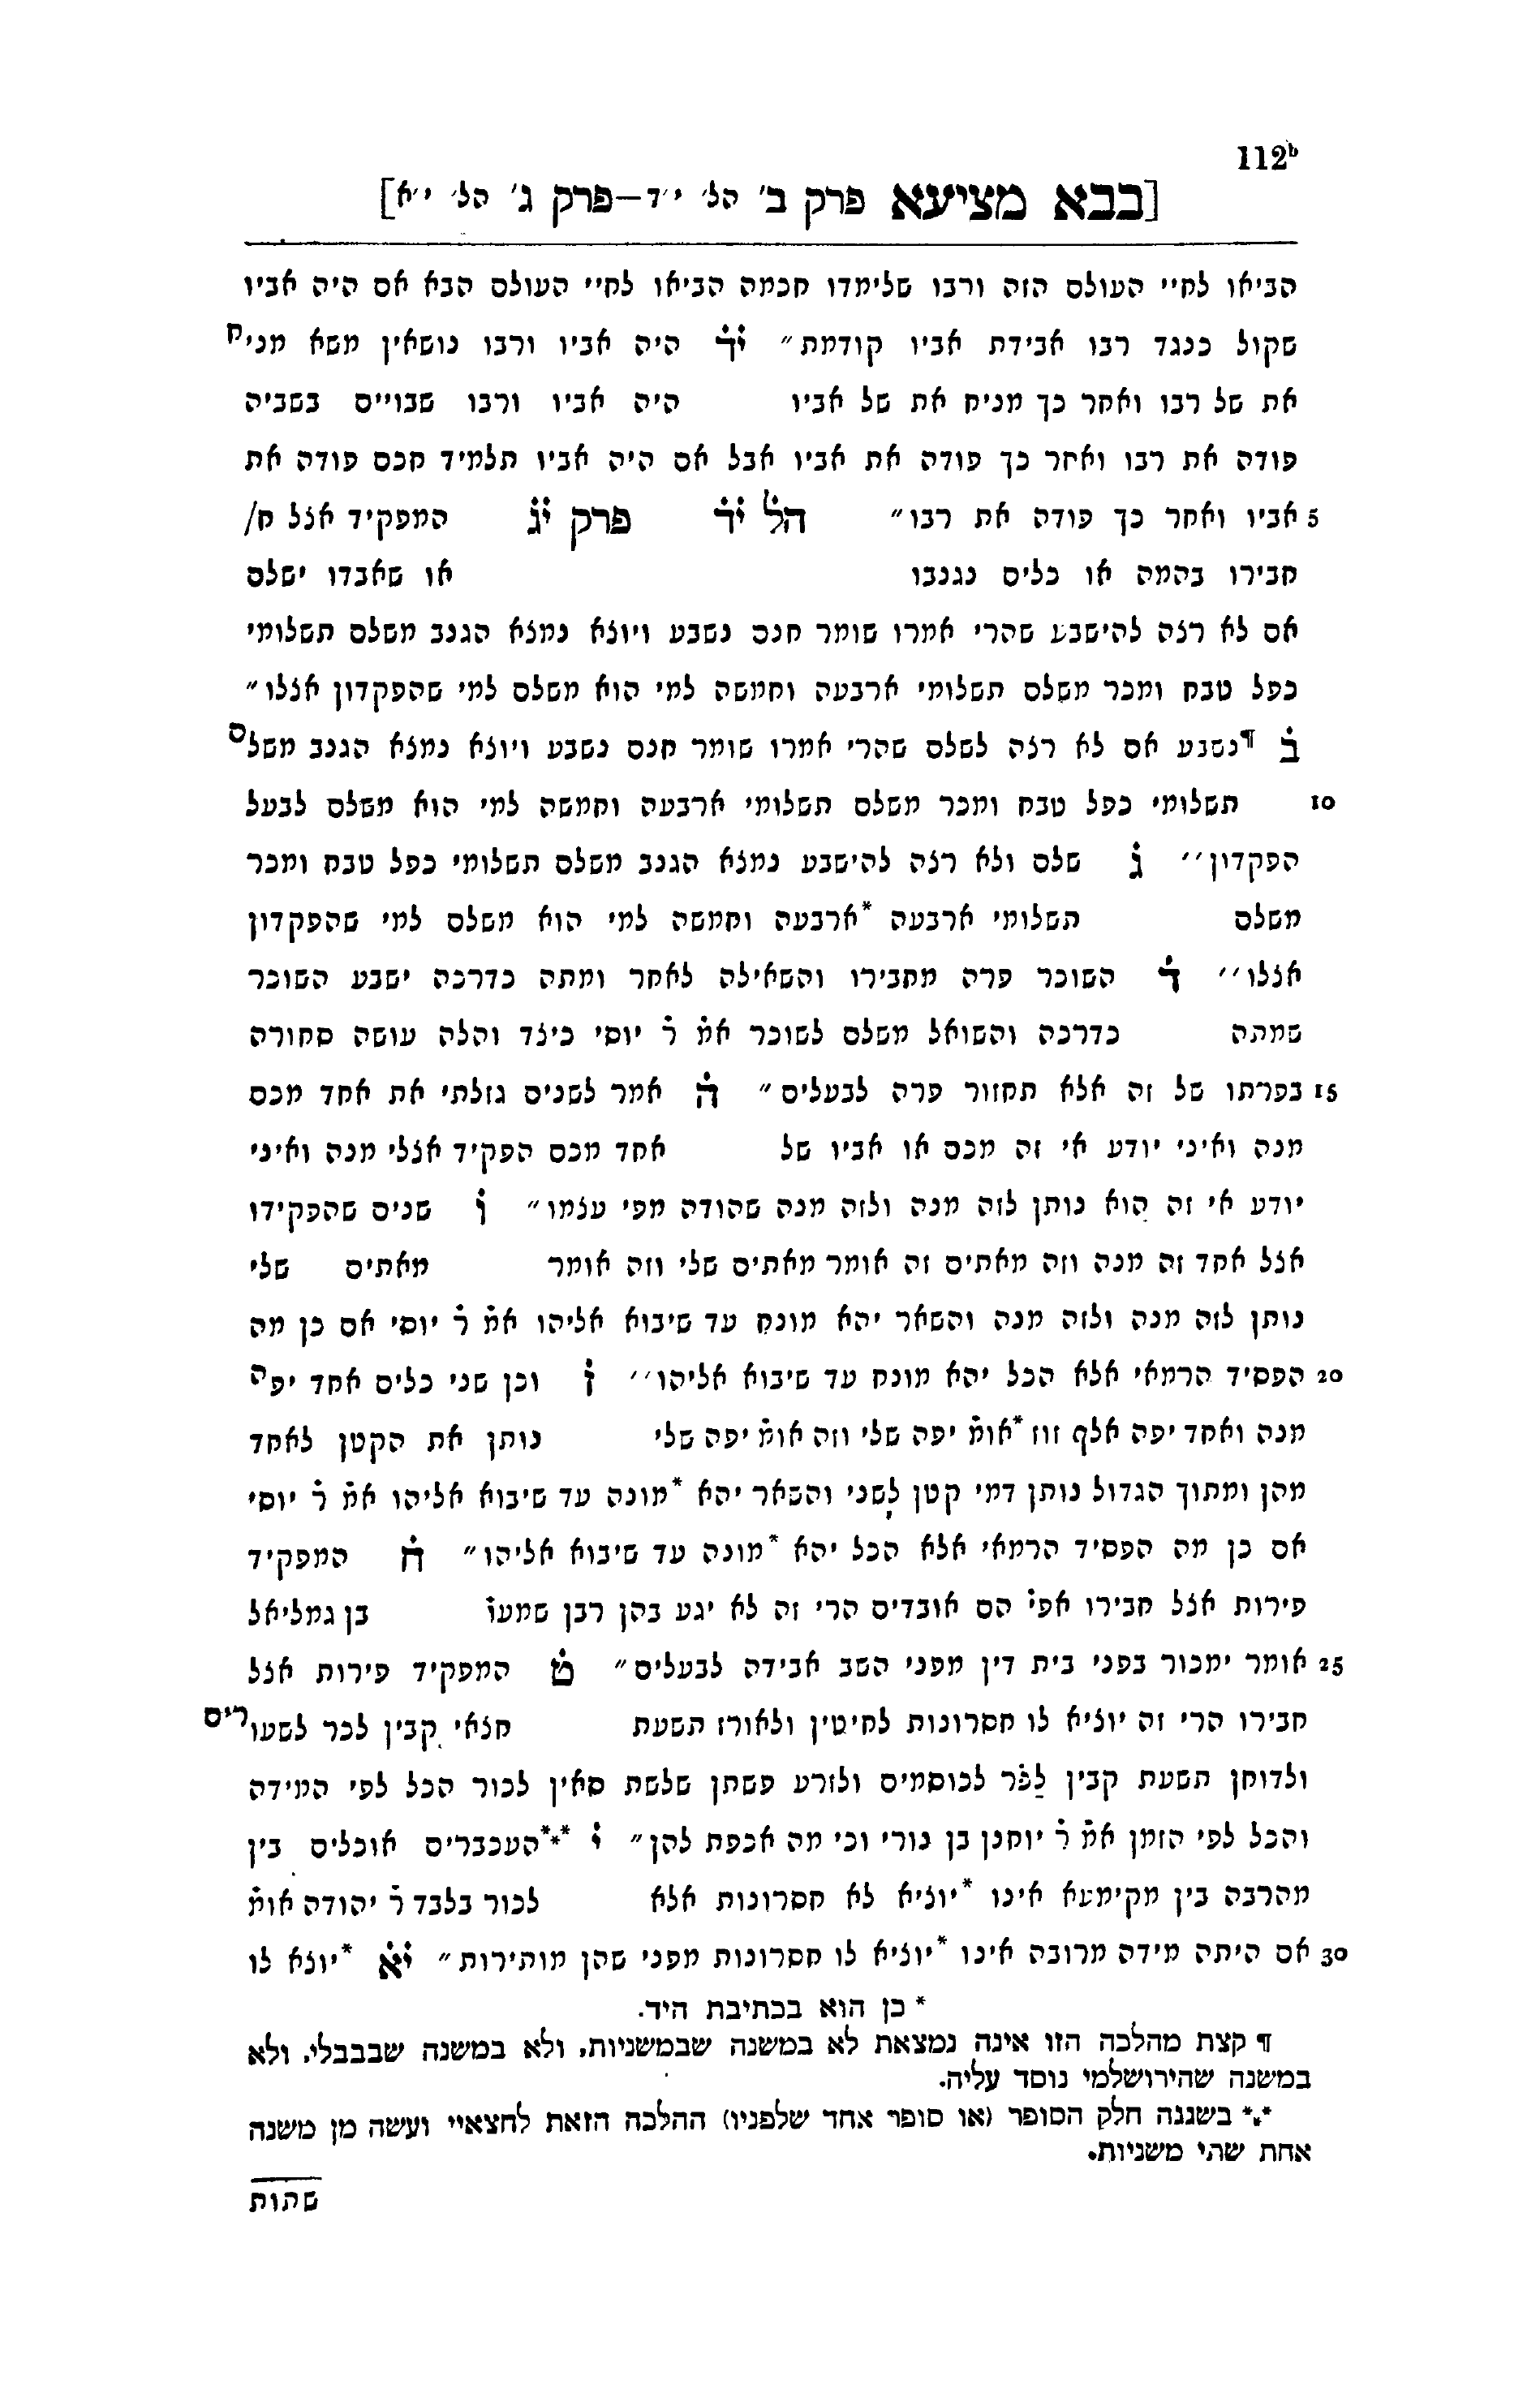 112b
[בבא מציעא פרק ב' הל' י״ד—פרק ג' הל' י״א]
הביאו לחיי העולם הזה ורבו שלימדו חכמה הביאו לחיי העולם הבא אם היה אביו
שקול כנגד רבו אבידת אביו קודמת״ יד היה אביו ורבו נושאין משא מניח
את של רבו ואחר כך מניח את של אביו היה אביו ורבו שבויים בשביה
פודה את רבו ואחר כך פודה את אביו אבל אם היה אביו תלמיד חכם פודה את
5 אביו ואחר כך פודה את רבו״ הל יד פרק יג המפקיד אצל ח/
חבירו בהמה או כלים נגנבו או שאבדו ישלם
אם לא רצה להישבע שהרי אמרו שומר חנם נשבע ויוצא נמצא הגנב משלם תשלומי
כפל טבח ומכר משלם תשלומי ארבעה וחמשה למי הוא משלם למי שהפקדון אצלו״
ב ¶נשבע אם לא רצה לשלם שהרי אמרו שומר חנם נשבע ויוצא נמצא הגנב משלם
10 תשלומי כפל טבח ומכר משלם תשלומי ארבעה וחמשה למי הוא משלם לבעל
הפקדון״ ג שלם ולא רצה להישבע נמצא הגנב משלם תשלומי כפל טבח ומכר
משלם תשלומי ארבעה *ארבעה וחמשה למי הוא משלם למי שהפקדון
אצלו״ ד השוכר פרה מחבירו והשאילה לאחר ומתה כדרכה ישבע השוכר
שמתה כדרכה והשואל משלם לשוכר אמ̇ ר̇ יוסי כיצד והלה עושה סחורה
15 בפרתו של זה אלא תחזור פרה לבעלים״ ה אמר לשנים גזלתי את אחד מכם
מנה ואיני יודע אי זה מכם או אביו של אחד מכם הפקיד אצלי מנה ואיני
יודע אי זה הוא נותן לזה מנה ולזה מנה שהודה מפי עצמו״ ו שנים שהפקידו
אצל אחד זה מנה וזה מאתים זה אומר מאתים שלי וזה אומר מאתים שלי
נותן לזה מנה ולזה מנה והשאר יהא מונח עד שיבוא אליהו אמ̇ ר̇ יוסי אם כן מה
20 הפסיד הרמאי אלא הכל יהא מונח עד שיבוא אליהו״ ז וכן שני כלים אחד יפה
מנה ואחד יפה אלף זוז *אומ̇ יפה שלי וזה אומ̇ יפה שלי נותן את הקטן לאחד
מהן ומתוך הגדול נותן דמי קטן לשני והשאר יהא *מונה עד שיבוא אליהו אמ̇ ר̇ יוסי
אם כן מה הפסיד הרמאי אלא הכל יהא *מונה עד שיבוא אליהו״ ח המפקיד
פירות אצל חבירו אפי̇ הם אובדים הרי זה לא יגע בהן רבן שמעו̇ בן גמליאל
25 אומר ימכור בפני בית דין מפני השב אבידה לבעלים״ ט המפקיד פירות אצל
חבירו הרי זה יוציא לו חסרונות לחיטין ולאורז תשעת חצאי קבין לכר לשעורים
ולדוחן תשעת קבין לכ̇ר לכוסמים ולזרע פשתן שלשת סאין לכור הכל לפי המידה
והכל לפי הזמן אמ̇ ר̇ יוחנן בן נורי וכי מה אכפת להן״ י ***העכברים אוכלים בין
מהרבה בין מקימעא אינו *יוציא לא חסרונות אלא לכור בלבד ר̇ יהודה אומ̇
30 אם היתה מידה מרובה אינו *יוציא לו חסרונות מפני שהן מותירות״ יא *יוצא לו
* כן הוא בכתיבת היד.
¶ קצת מהלכה הזו אינה נמצאת לא במשנה שבמשניות, ולא במשנה שבבבלי, ולא
במשנה שהירושלמי נוסד עליה.
*** בשגגה חלק הסופר (או סופר אחד שלפניו) ההלכה הזאת לחצאיי ועשה מן משנה
אחת שתי משניות.
שתות